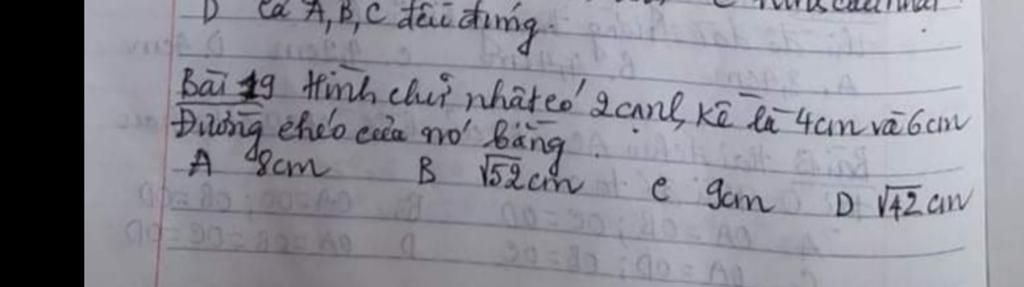 D Cả A, B, C đều đúng.
Bài 19 Hình chữ nhật có 2 cạnh kề là 4cm và 6cm
Đường chéo của nó bằng
A 8cm B √52cm C 9cm D √42cm